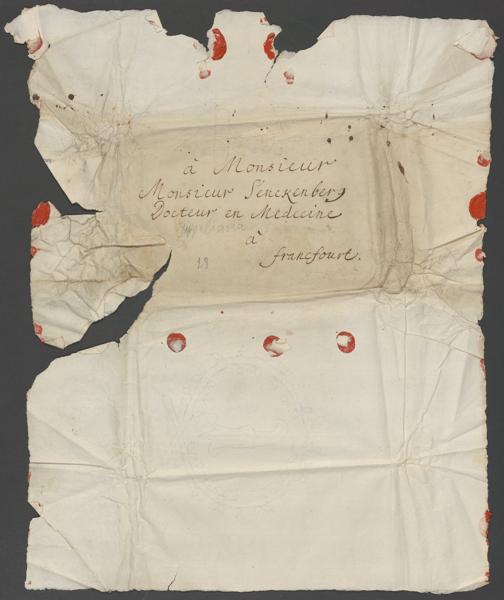 à Monsieur
Monsieur Senckenberg
Docteur en Medecine
à
francfourt.
18